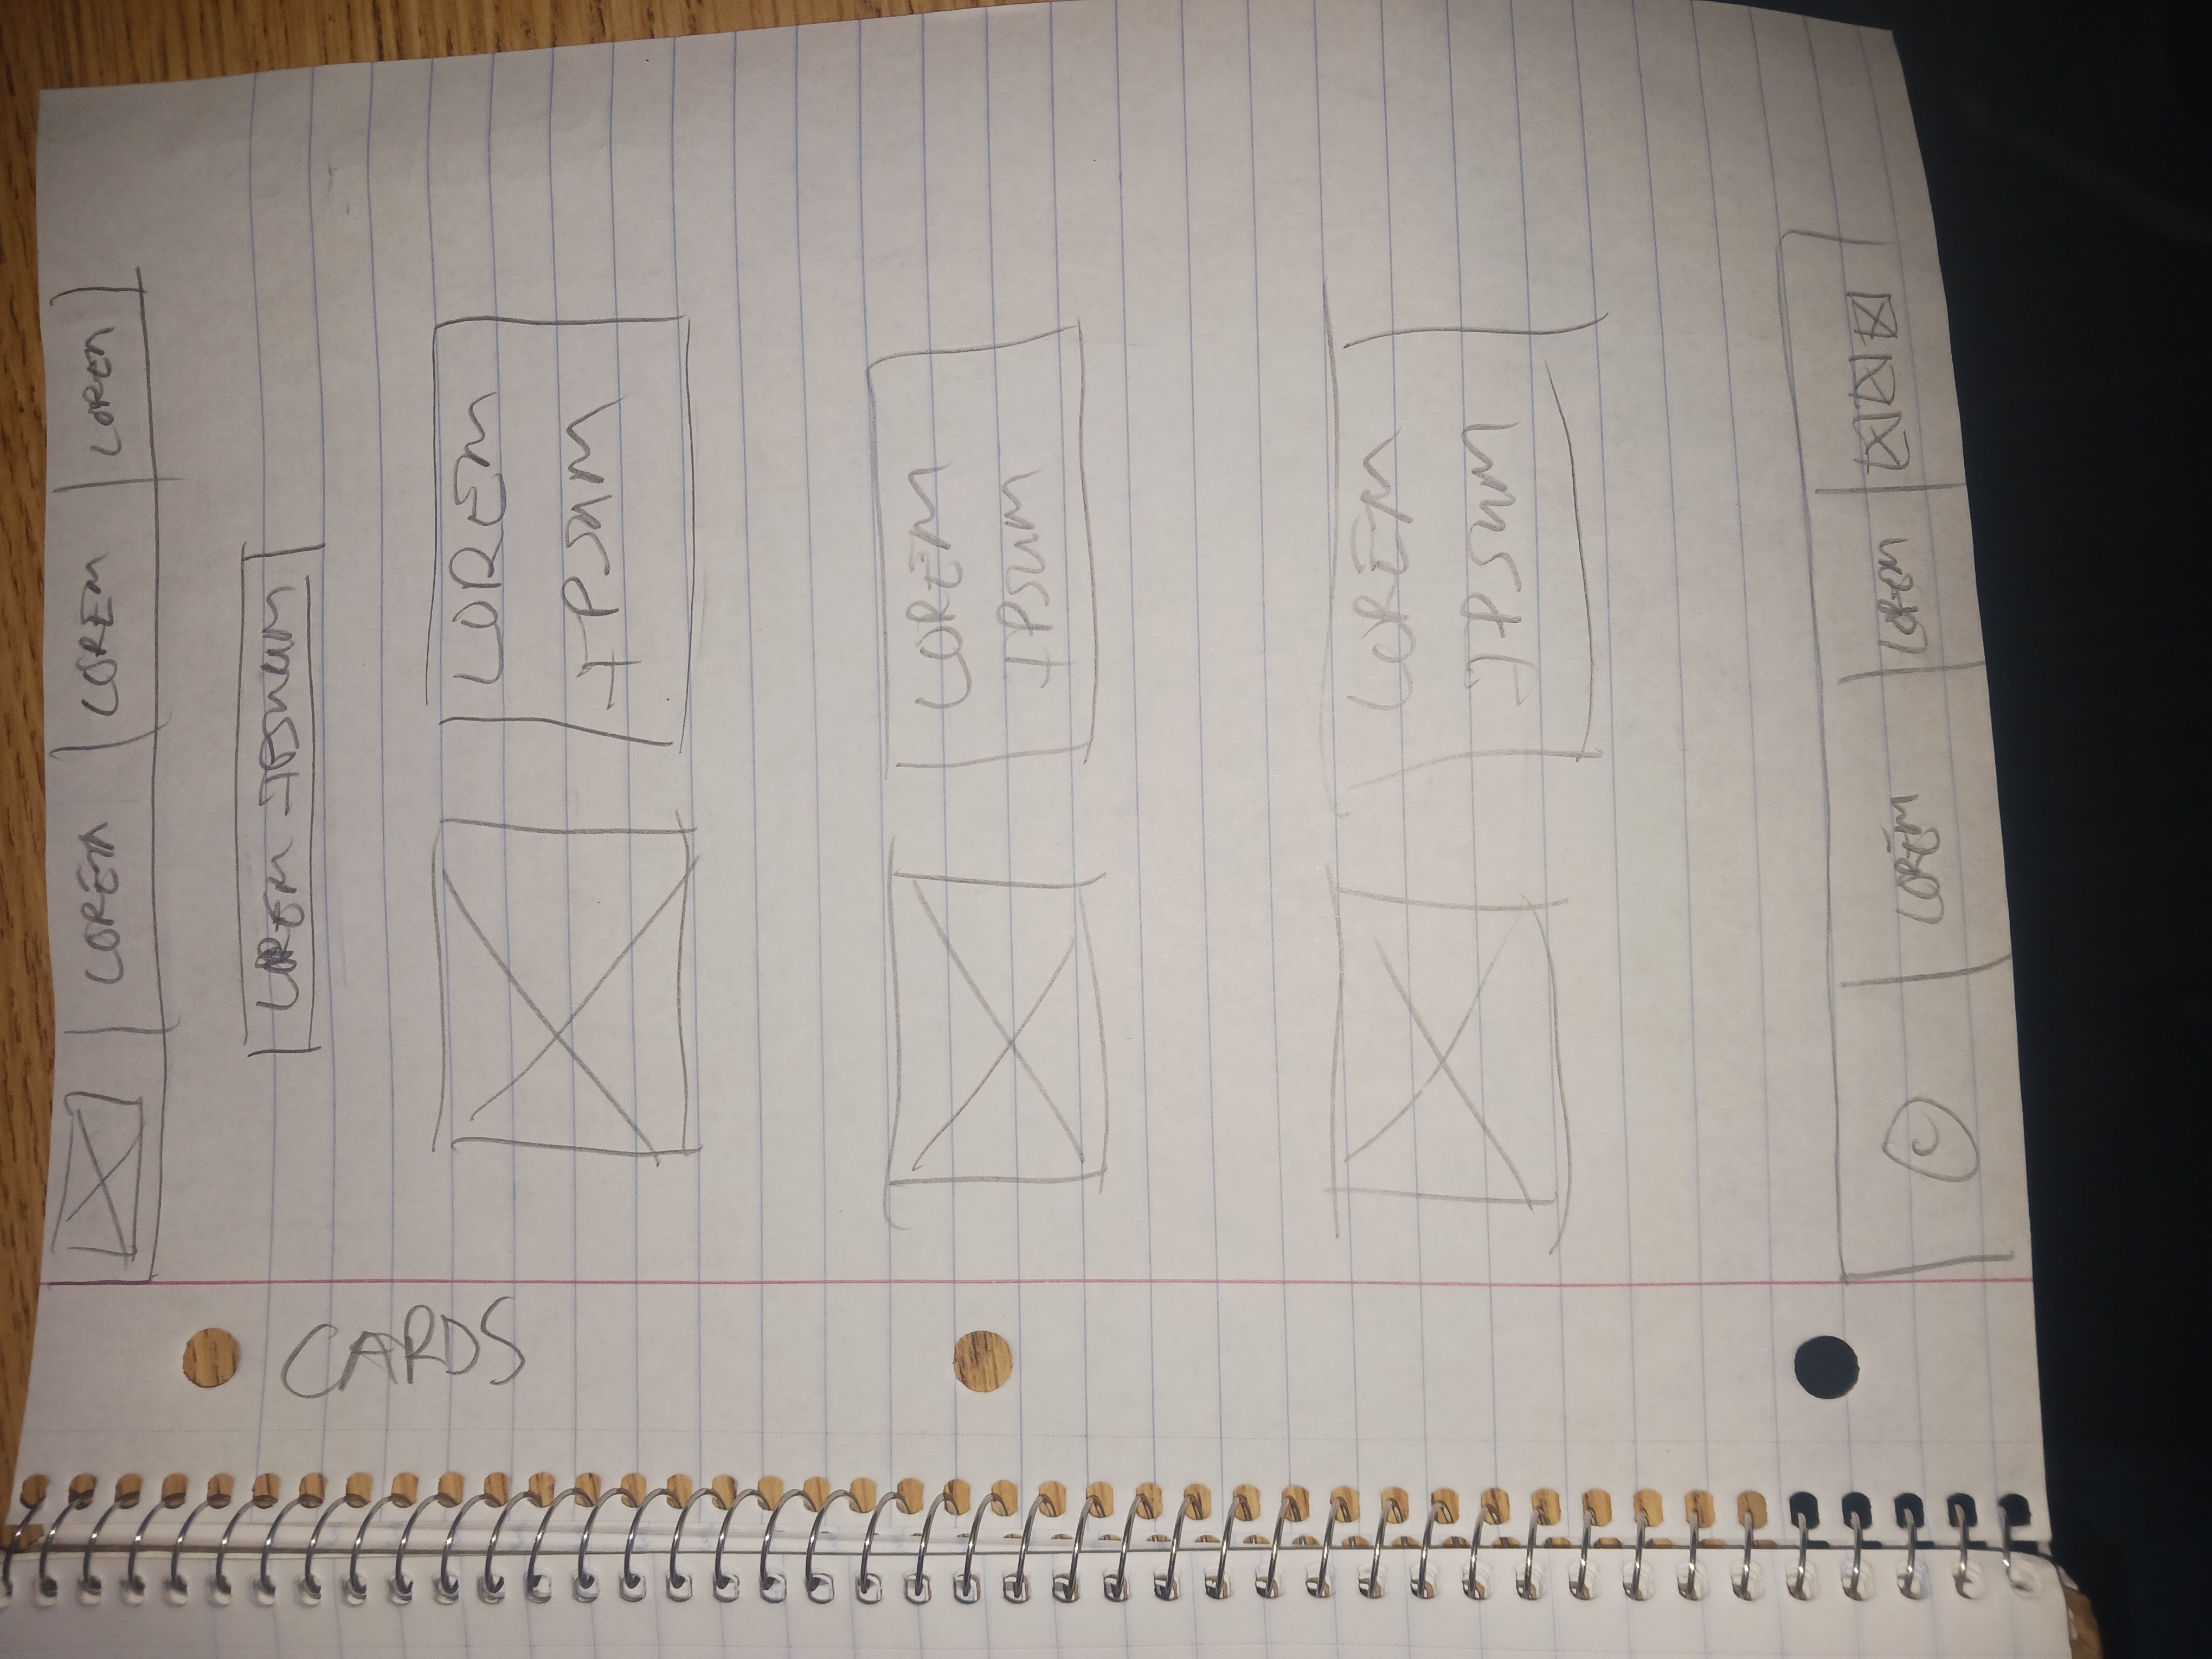 CARDS
LOREM LOREM LOREM
LOREM IPSUUM
LOREM
IPSUM
LOREM
IPSUM
LOREM
IPSUM
© LOREM LOREM